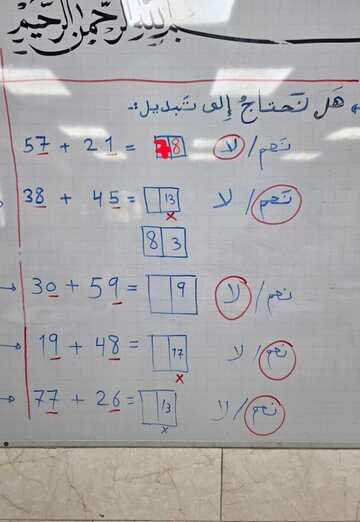 بسم الله الرحمن الرحيم
هل نحتاج إلى تبديل:-
57 + 21 = 78 نعم / لا
38 + 45 = 13 نعم / لا
x
83
30 + 59 = 9 نعم / لا
19 + 48 = 17 نعم / لا
x
77 + 26 = 13 نعم / لا
x